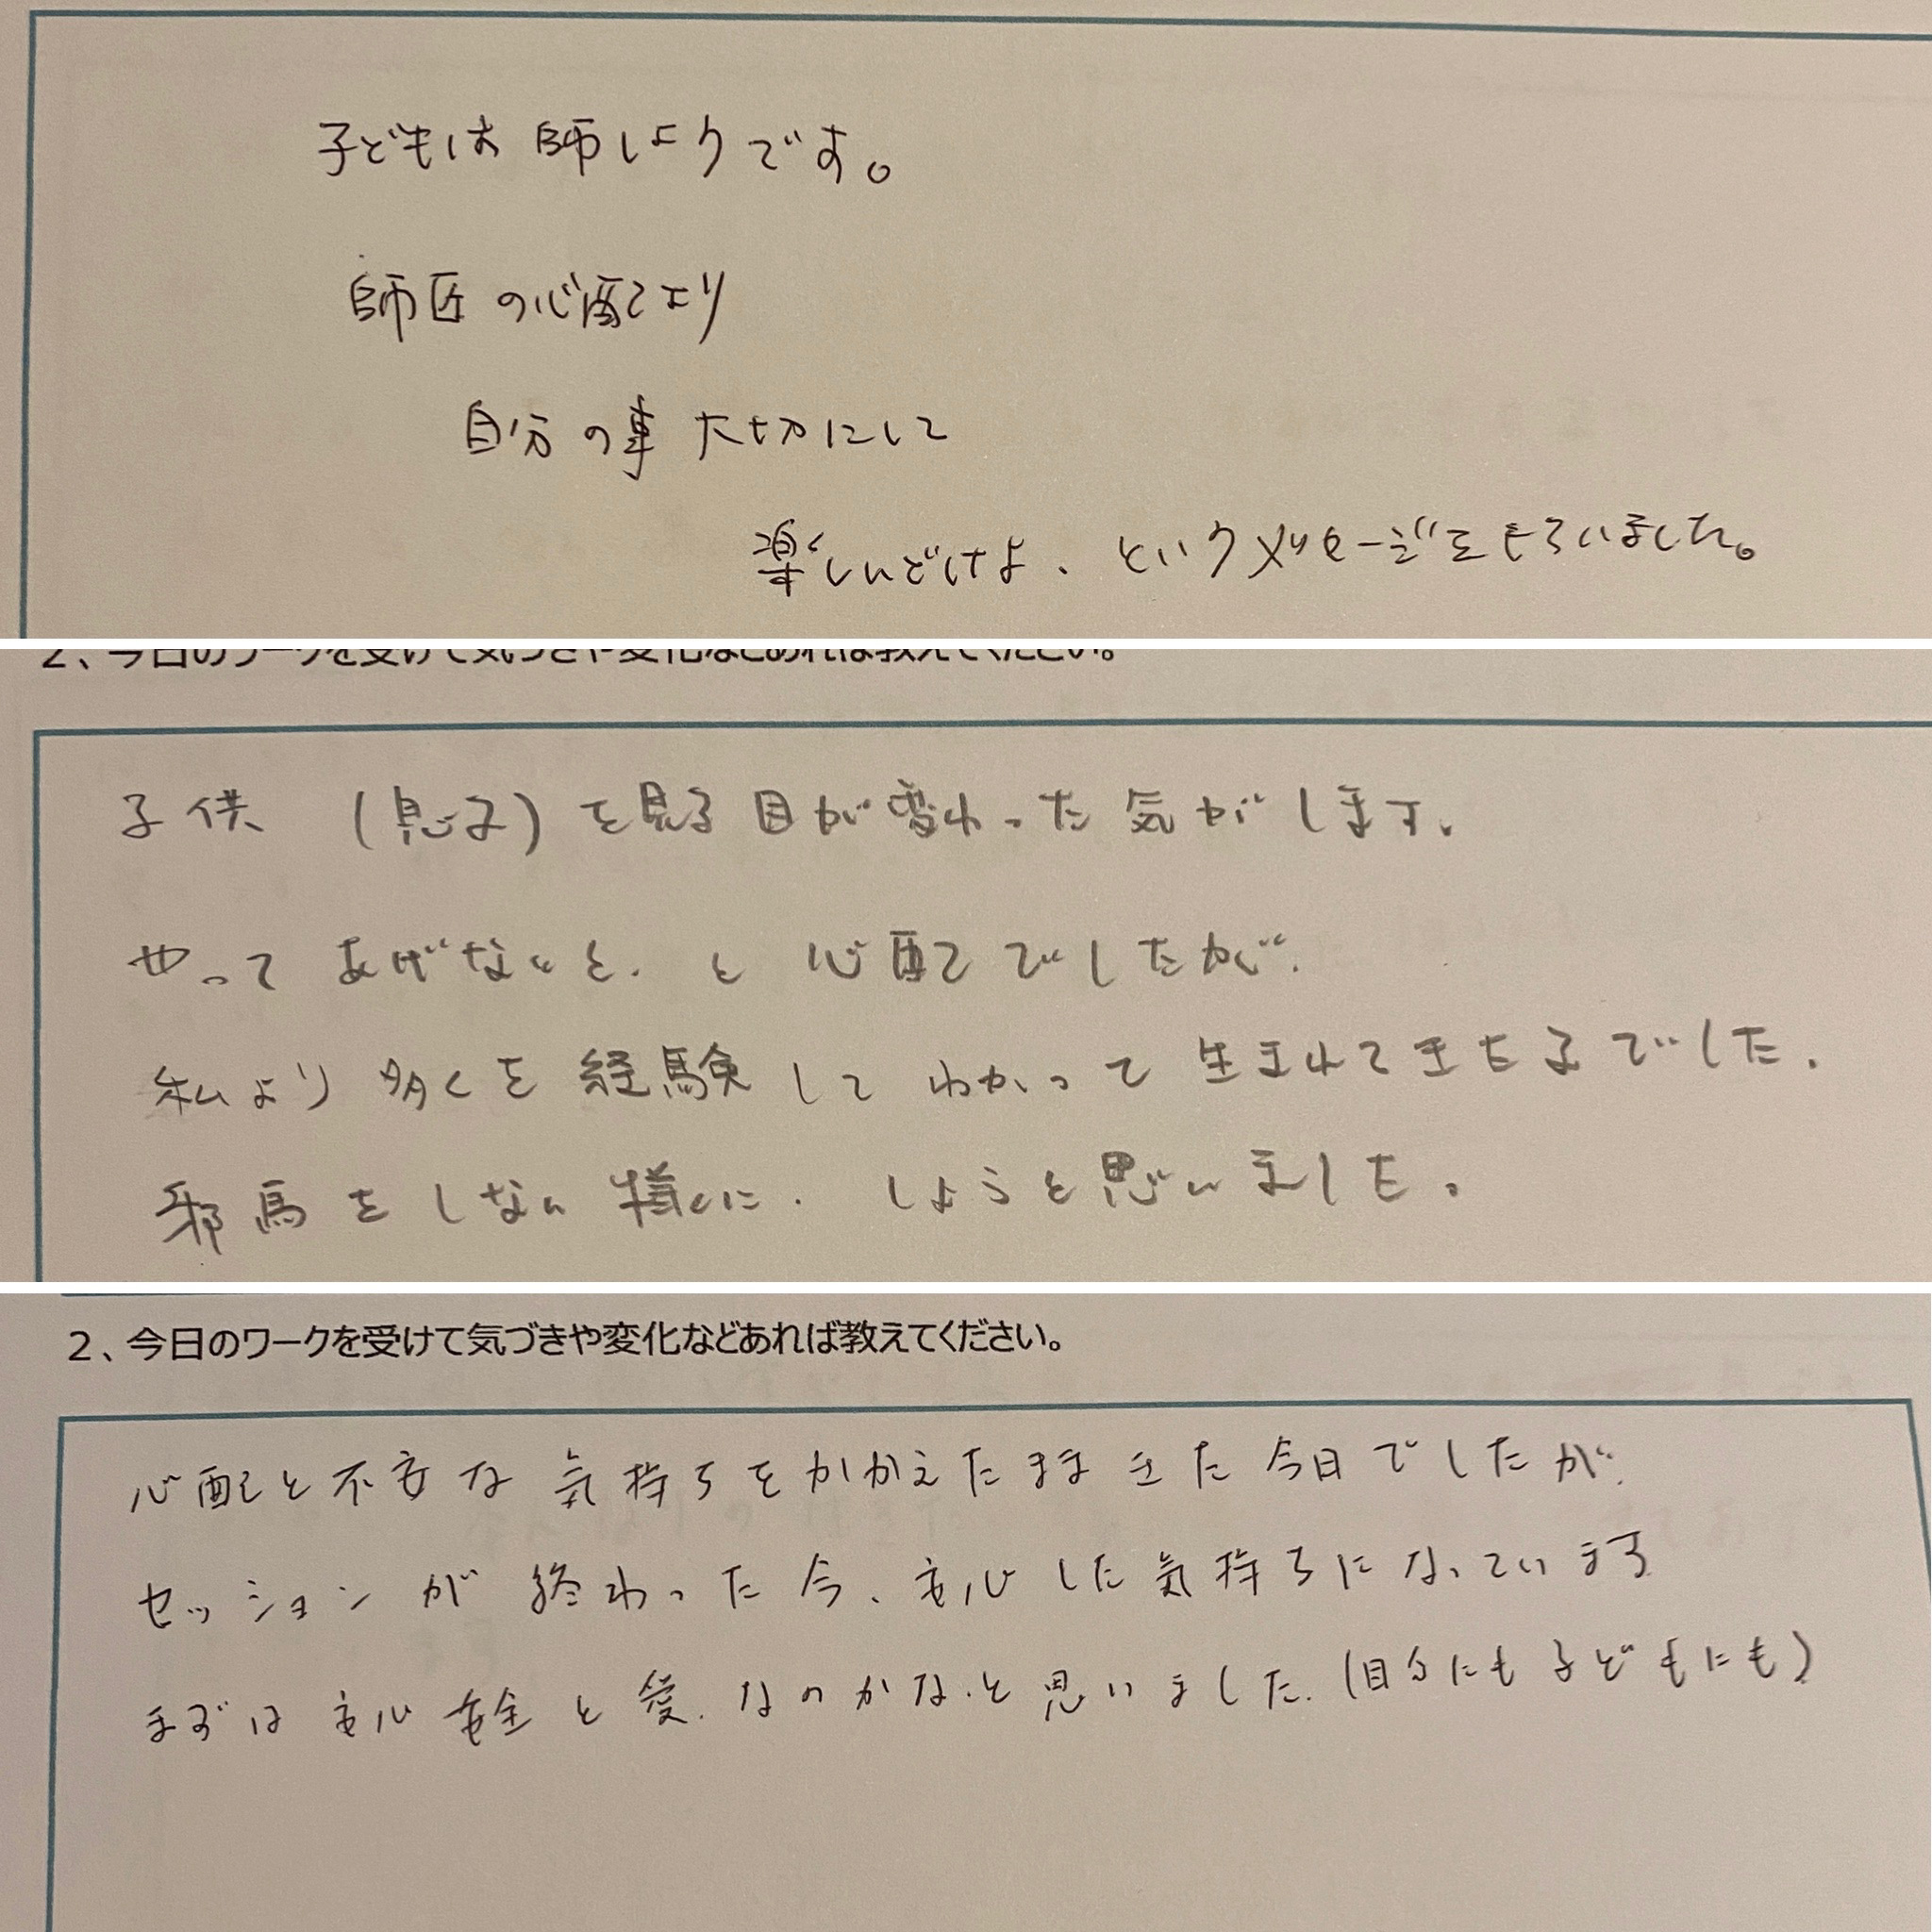 子どもは師しょうです。
師匠の心配より
自分の事大切にして
楽しんどけよ、というメッセージをもらいました。
2、今日のワークを受けて気づきや変化などあれば教えてください。
子供 (息子)を見る目が変わった気がします。
やってあげないと、と心配でしたが、
私より多くを経験してわかって生まれてきた子でした。
邪馬をしない様に、しようと思いました。
2、今日のワークを受けて気づきや変化などあれば教えてください。
心配と不安な気持ちをかかえたままきた今日でしたが、
セッションが終わった今、安心した気持ちになっています
まずは安心安全と愛、なのかな、と思いました、(自分にも子どもにも)